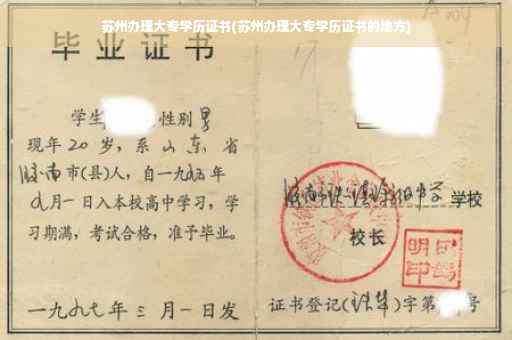 苏州办理大专学历证书(苏州办理大专学历证书的地方)
毕业证书
学生 性别 男
现年20岁，系山东 省
济南市(县)人，自一九九五年
九月一日入本校高中学习，学
习期满，考试合格，准予毕业。
一九九七年三月一日发
学校
校长
证书登记( )字第 号